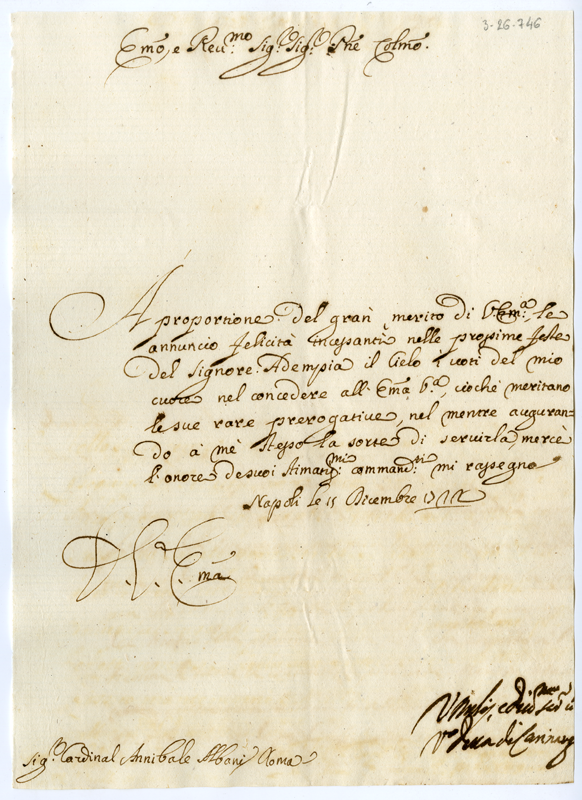 3-26-746
Emo, e Reu.mo Sig.r Sig.r Pne Colmo.
A proportione del gran merito di V. Em.a le
annuncio felicità incessanti nelle prossime feste
del Signore. Adempia il Cielo i voti del mio
cuore nel concedere all' Ema V.a, ciochè meritano
le sue rare prerogative, nel mentre auguran=
do à mè stesso la sorte di servirla, mercè
l'onore de suoi stimatis.mi command.ti mi rassegno
Napoli le 15 Dicembre 1722
D. V. Ema
Sig.r Cardinal Annibale Albani Roma